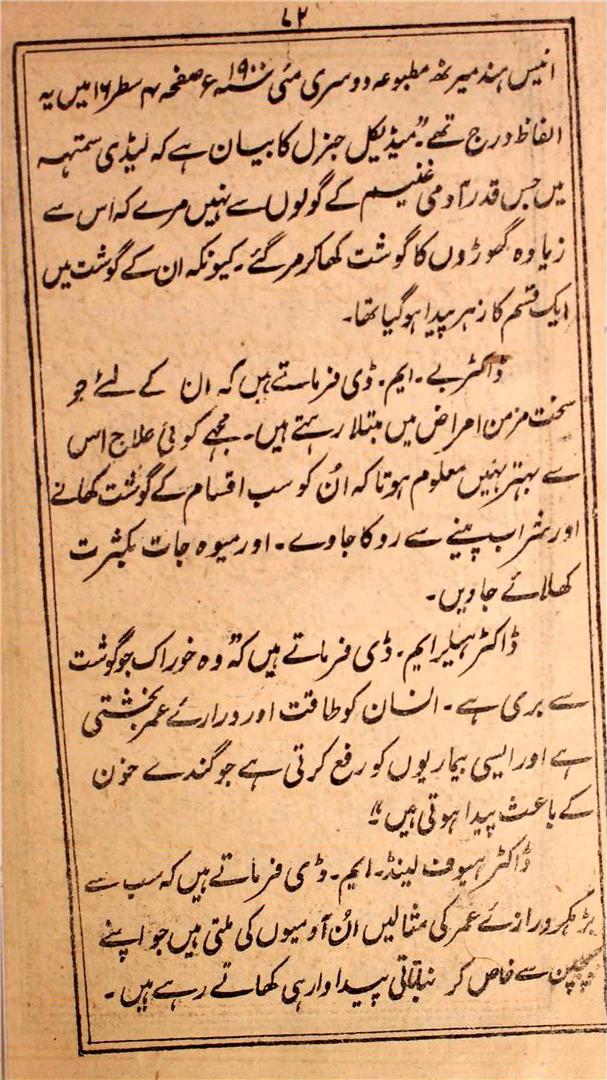 ۷۲
انیس ہند میرٹھ مطبوعہ دوسری مئی سنہ ۱۹۰۰ء صفحہ ۴ سطر ۱۶ میں یہ
الفاظ درج تھے۔ "میڈیکل جنرل کا بیان ہے کہ لیڈی سمتھہ
میں جس قدر آدمی غنیم کے گولوں سے نہیں مرے کہ اس سے
زیادہ گھوڑوں کا گوشت کھا کر مر گئے۔ کیونکہ ان کے گوشت میں
ایک قسم کا زہر پیدا ہو گیا تھا۔
ڈاکٹر بے۔ ایم۔ ڈی فرماتے ہیں کہ ان کے لئے جو
سخت مزمن امراض میں مبتلا رہتے ہیں۔ مجہے کوئی علاج اس
سے بہتر نہیں معلوم ہوتا کہ اُن کو سب اقسام کے گوشت کھانے
اور شراب پینے سے روکا جاوے۔ اور میوہ جات بکثرت
کھلائے جاویں۔
ڈاکٹر ہیلر ایم۔ ڈی فرماتے ہیں کہ "وہ خوراک جو گوشت
سے بری ہے۔ انسان کو طاقت اور درازے عمر بخشتی
ہے اور ایسی بیماریوں کو رفع کرتی ہے جو گندے خون
کے باعث پیدا ہوتی ہیں"۔
ڈاکٹر ہیوف لینڈ۔ ایم۔ ڈی فرماتے ہیں کہ سب سے
بڑھکر درازئے عمر کی مثالیں اُن آدمیوں کی ملتی ہیں جو اپنے
بچپن سے خاص کر نباتاتی پیداوار ہی کھاتے رہے ہیں۔